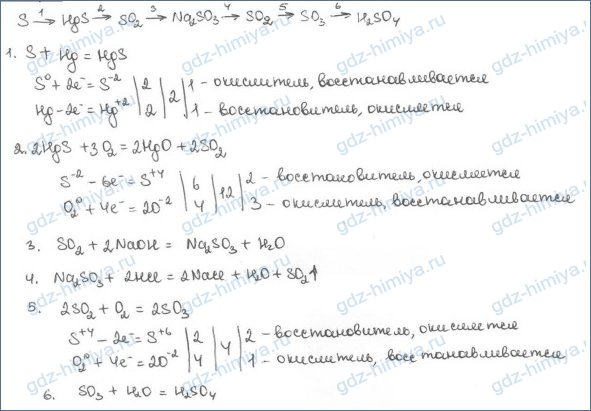 S 1→ HgS 2→ SO₂ 3→ Na₂SO₃ 4→ SO₂ 5→ SO₃ 6→ H₂SO₄
1. S + Hg = HgS
S⁰ + 2e⁻ = S⁻² | 2 | 2 | 1 - окислитель, восстанавливается
Hg - 2e⁻ = Hg⁺² | 2 | | 1 - восстановитель, окисляется
2. 2HgS + 3O₂ = 2HgO + 2SO₂
S⁻² - 6e⁻ = S⁺⁴ | 6 | 12 | 2 - восстановитель, окисляется
O₂⁰ + 4e⁻ = 2O⁻² | 4 | | 3 - окислитель, восстанавливается
3. SO₂ + 2NaOH = Na₂SO₃ + H₂O
4. Na₂SO₃ + 2HCl = 2NaCl + H₂O + SO₂↑
5. 2SO₂ + O₂ = 2SO₃
S⁺⁴ - 2e⁻ = S⁺⁶ | 2 | 4 | 2 - восстановитель, окисляется
O₂⁰ + 4e⁻ = 2O⁻² | 4 | | 1 - окислитель, восстанавливается
6. SO₃ + H₂O = H₂SO₄
gdz-himiya.ru